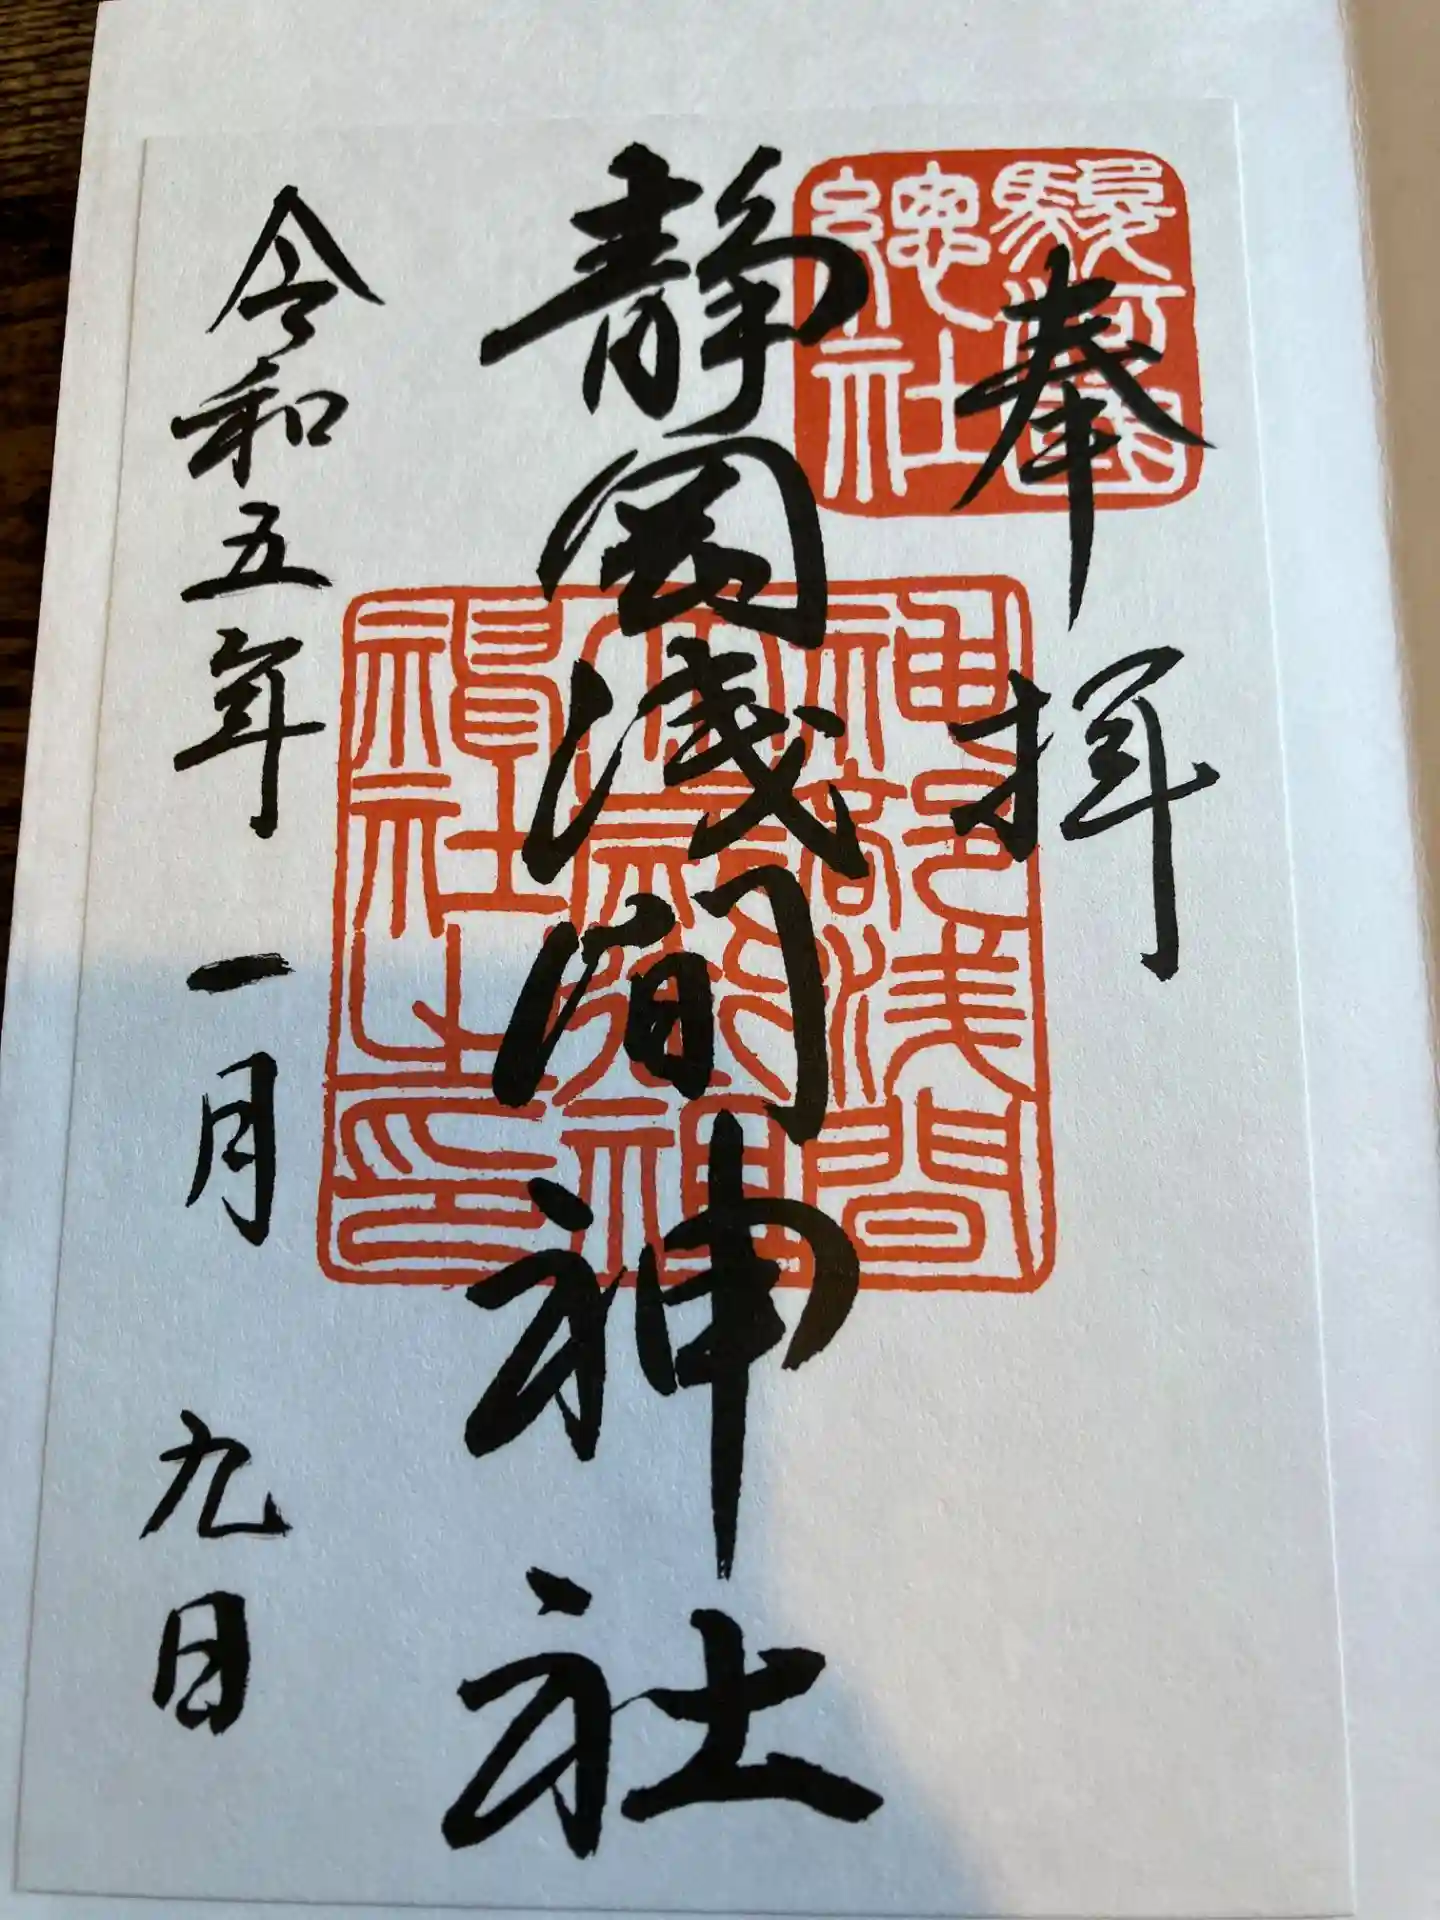 奉拝
駿河國
總社
静岡浅間神社
神部浅間
大歳御祖神
社之印
令和五年一月九日